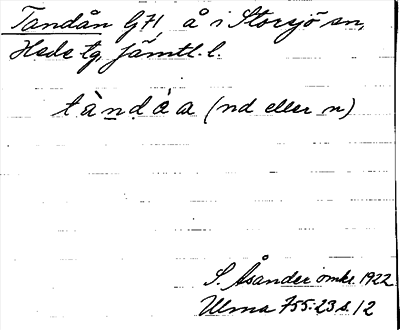 Tandån G71 å i Storsjö sn,
Hede tg, Jämtl. l.
tàndáa (nd eller n)
S. Åsander omkr. 1922
Ulma 755:23 s. 12